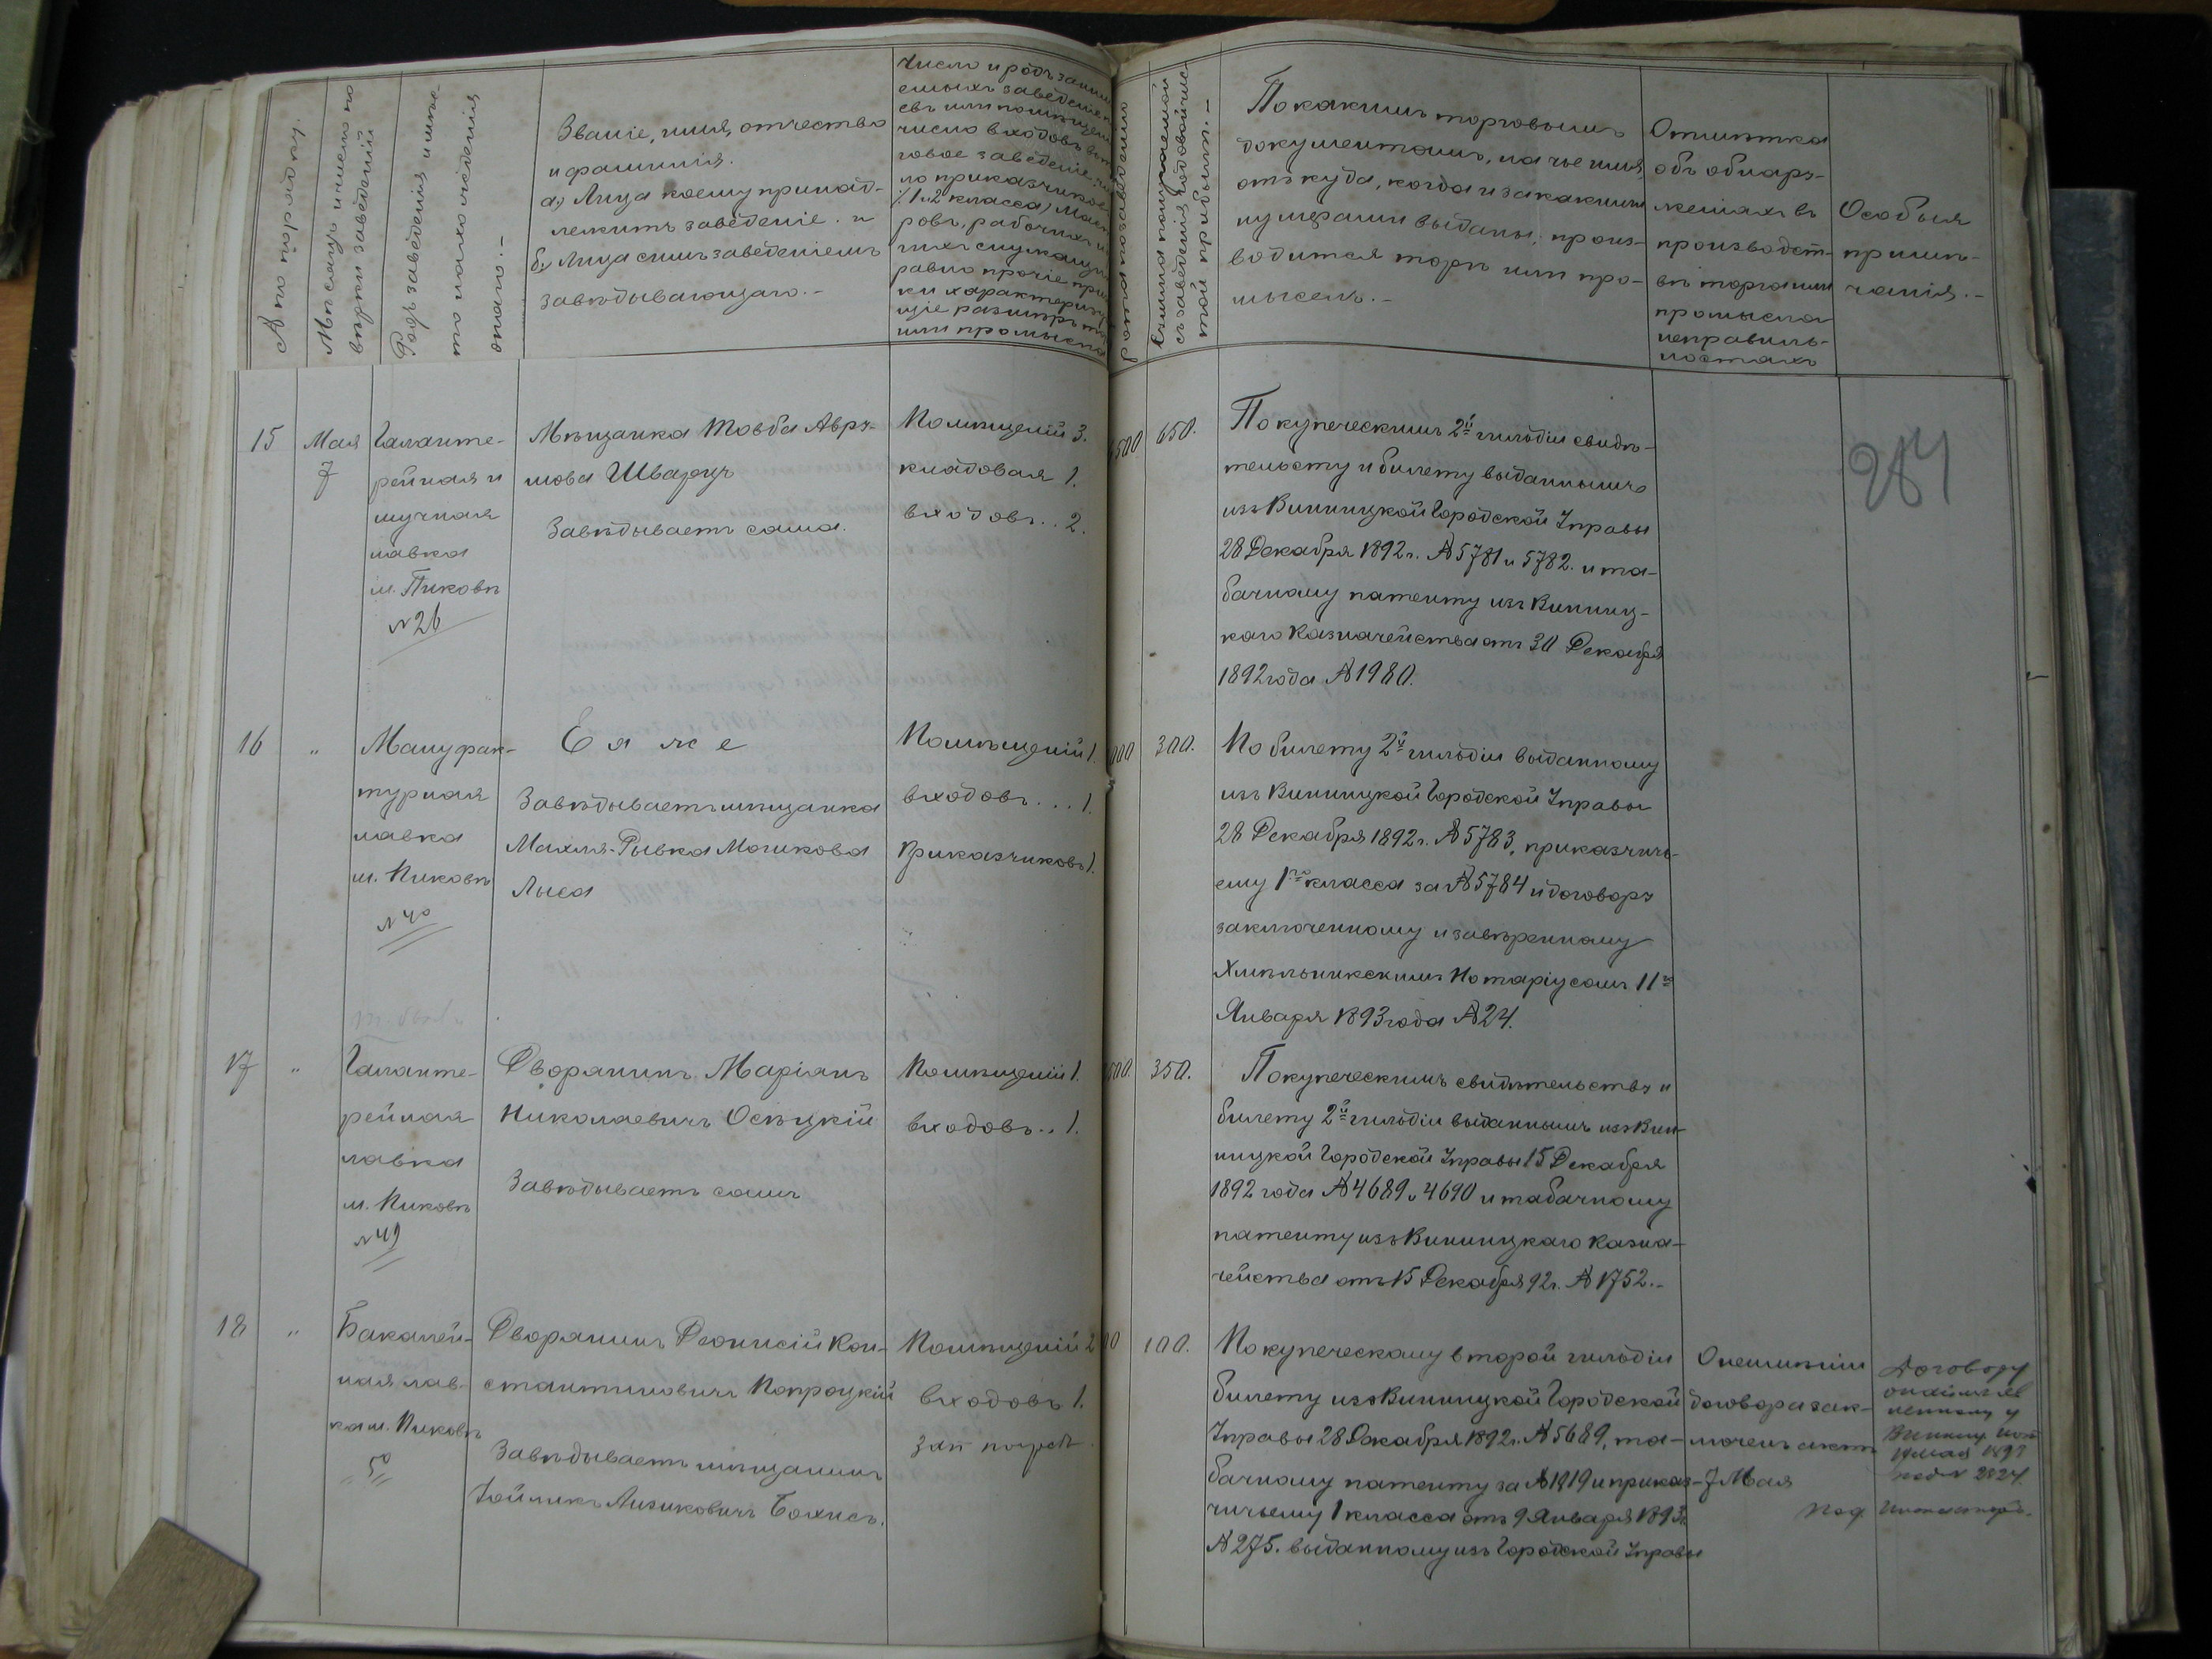 № по порядку.
Мѣсяцъ и число по
вѣрки заведеній
Родъ заведенія и мѣс-
то нахожденія
онаго.—
Званіе, имя, отчество
и фамилія.
а) Лица коему принад-
лежитъ заведеніе. и
б) Лица симъ заведеніемъ
завѣдывающаго.—
Число и родъ
заведеній
или
число входовъ
говое заведеніе
приказчиковъ
1 и 2 класса)
ровъ, рабочихъ и
служащихъ
равно прочіе
ки
щіе размѣръ
или промысла
съ заведенія годовой чис-
той прибыли.—
По какимъ торговымъ
документамъ, на чье имя,
откуда, когда и за какими
нумерами выданы, произ-
водится торгъ или про-
мыселъ.—
Отмѣтка
объ обнару-
женіяхъ въ
производст-
вѣ торга или
промысла
неправиль-
ностяхъ
Особыя
примѣ-
чанія.—
284
15
Мая
7
Галанте-
рейная и
мучная
лавка
м. Пиковъ
№26
Мѣщанка Товба Авру-
мова Шварцъ
Завѣдываетъ сама.
Помѣщеній 3.
кладовая 1.
входовъ.. 2.
650.
По купеческимъ 2й гильдіи свидѣ-
тельству и билету выданнымъ
изъ Винницкой Городской Управы
28 Декабря 1892 г. №5781 и 5782. и та-
бачному патенту изъ Винниц-
каго Казначейства отъ 30 Декабря
1892 года №1980.
16
"
Мануфак-
турная
лавка
м. Пиковъ
№40
Ея же
Завѣдываетъ мѣщанка
Махля-Рывка Мошкова
Лыса
Помѣщеній 1.
входовъ... 1.
Приказчиковъ 1.
300.
По билету 2й гильдіи выданному
изъ Винницкой Городской Управы
28 Декабря 1892 г. №5783, приказчичь-
ему 1го класса за №5784 и договору
заключенному и завѣренному
Хмѣльникскимъ Нотаріусомъ 11го
Января 1893 года №24.
17
"
Галанте-
рейная
лавка
м. Пиковъ
№49
Дворянинъ Маріанъ
Николаевичъ Осѣцкій
Завѣдываетъ самъ
Помѣщеній 1.
входовъ.. 1.
350.
По купеческимъ свидѣтельству и
билету 2й гильдіи выданнымъ изъ Вин-
ницкой Городской Управы 15 Декабря
1892 года №4689 и 4690 и табачному
патенту изъ Винницкаго Казна-
чейства отъ 15 Декабря 92 г. №1752.—
18
"
Бакалей-
ная лав-
ка м. Пиковъ
50
Дворянинъ Діонисій Кон-
стантиновичъ Попроцкій
Завѣдываетъ мѣщанинъ
Бохисъ.
Помѣщеній 2
входовъ 1.
100.
По купеческому второй гильдіи
билету изъ Винницкой Городской
Управы 28 Декабря 1892 г. №5689, та-
бачному патенту за №1919 и приказ-
чичьему 1 класса отъ 9 Января 1893 г.
№275. выданному изъ Городской Управы
О неимѣніи
договора зак-
люченъ актъ
7 Мая
Договору